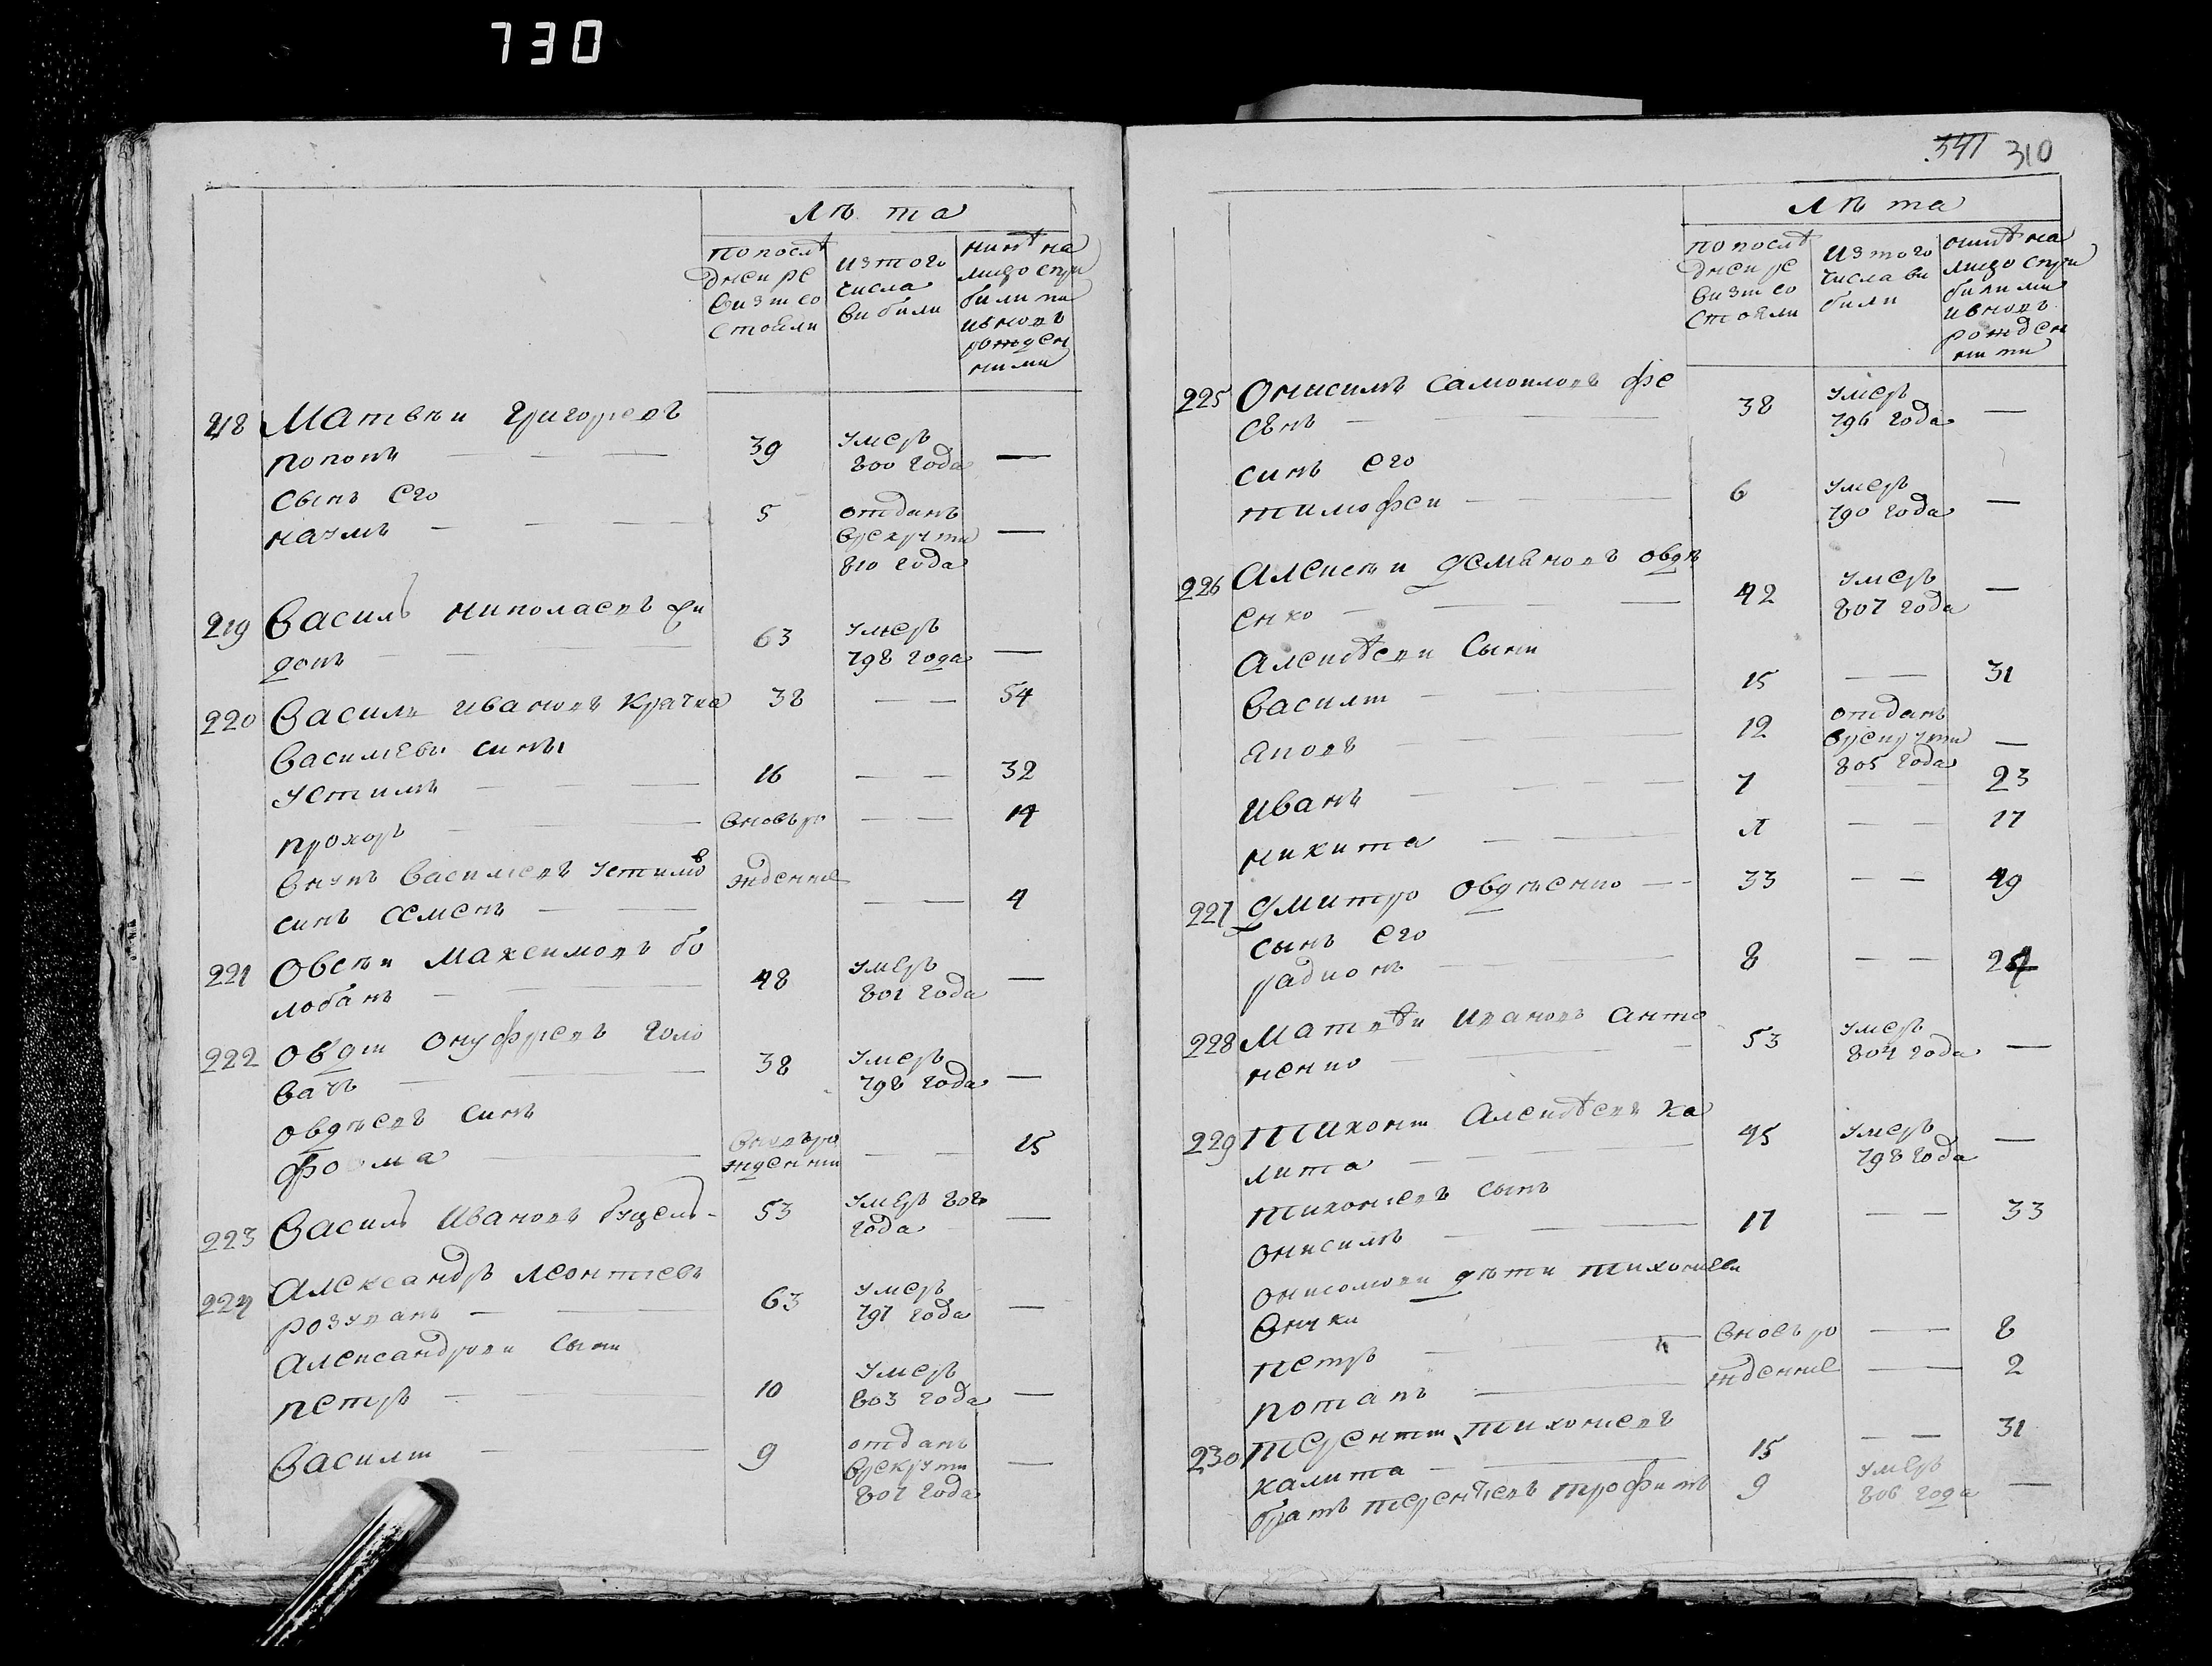 730
лѣта
по послѣ
дней ре
визии со
стояли
из того
числа
вибили
нинѣ на
лицо с при
били ми
и вновь
рожден
ними
218 Матвѣй Григорьевъ
попопъ — — — 39 умеръ 800 года —
сынъ его
наумъ — — — 5 отданъ в рекруты 810 года —
219 Василь николаевъ
донъ — — — 63 умеръ 798 года —
220 Василь ивановъ Крачка 38 — — 54
Василіевы сины
устимъ — — — 16 — — 32
прохоръ — — вновь ро — — 14
внукъ Василиевъ устимов
синъ семенъ — — жденние — — 4
221 Овсѣй Максимовъ бо
лобанъ — — — 48 умеръ 801 года —
222 Овдѣй Онуфриевъ голо
вачъ — — 38 умеръ 798 года —
овдѣевъ синъ
фома — вновь ро жденний — — 15
223 Василь Ивановъ 53 умеръ 808 года —
224 Александръ леонтиевъ
розуванъ — — 63 умеръ 797 года —
Александрови сыни
петръ — — — 10 умеръ 803 года —
Василий — — 9 отданъ в рекруты 807 года —
341 310
лѣта
по послѣ
дней ре
визии со
стояли
из того
числа ви
били
нинѣ на
лицо с при
били ми
и вновь
рожден
ними
225 Онисимъ самоиловъ фе
сѣнъ — — 38 умеръ 796 года —
синъ его
тимофей — — — 6 умеръ 790 года —
226 Алексѣй демяновъ овдѣ
енко — — — 42 умеръ 807 года —
Алексѣеви сыни
василий — — 15 — — 31
яковъ — — 12 отданъ в рекруты 805 года —
иванъ — — — 7 — — 23
никита — — — — — 17
227 дмитро овдѣенко — 33 — — 49
сынъ его
радионъ — — 8 — — 24
228 Матвѣй Ивановъ анто
ненко — — 53 умеръ 804 года —
229 тихонъ Алексѣевъ ка
лита — — 45 умеръ 798 года —
тихониевъ сынъ
онисимъ — — — 17 — — 33
онисимови дѣти тихониеви
внуки
петръ — — вновь ро — — 8
потапъ — — жденние — — 2
230 терентий тихониевъ
калита — — 15 — — 31
братъ терентиевъ трофимъ 9 умеръ 806 года —